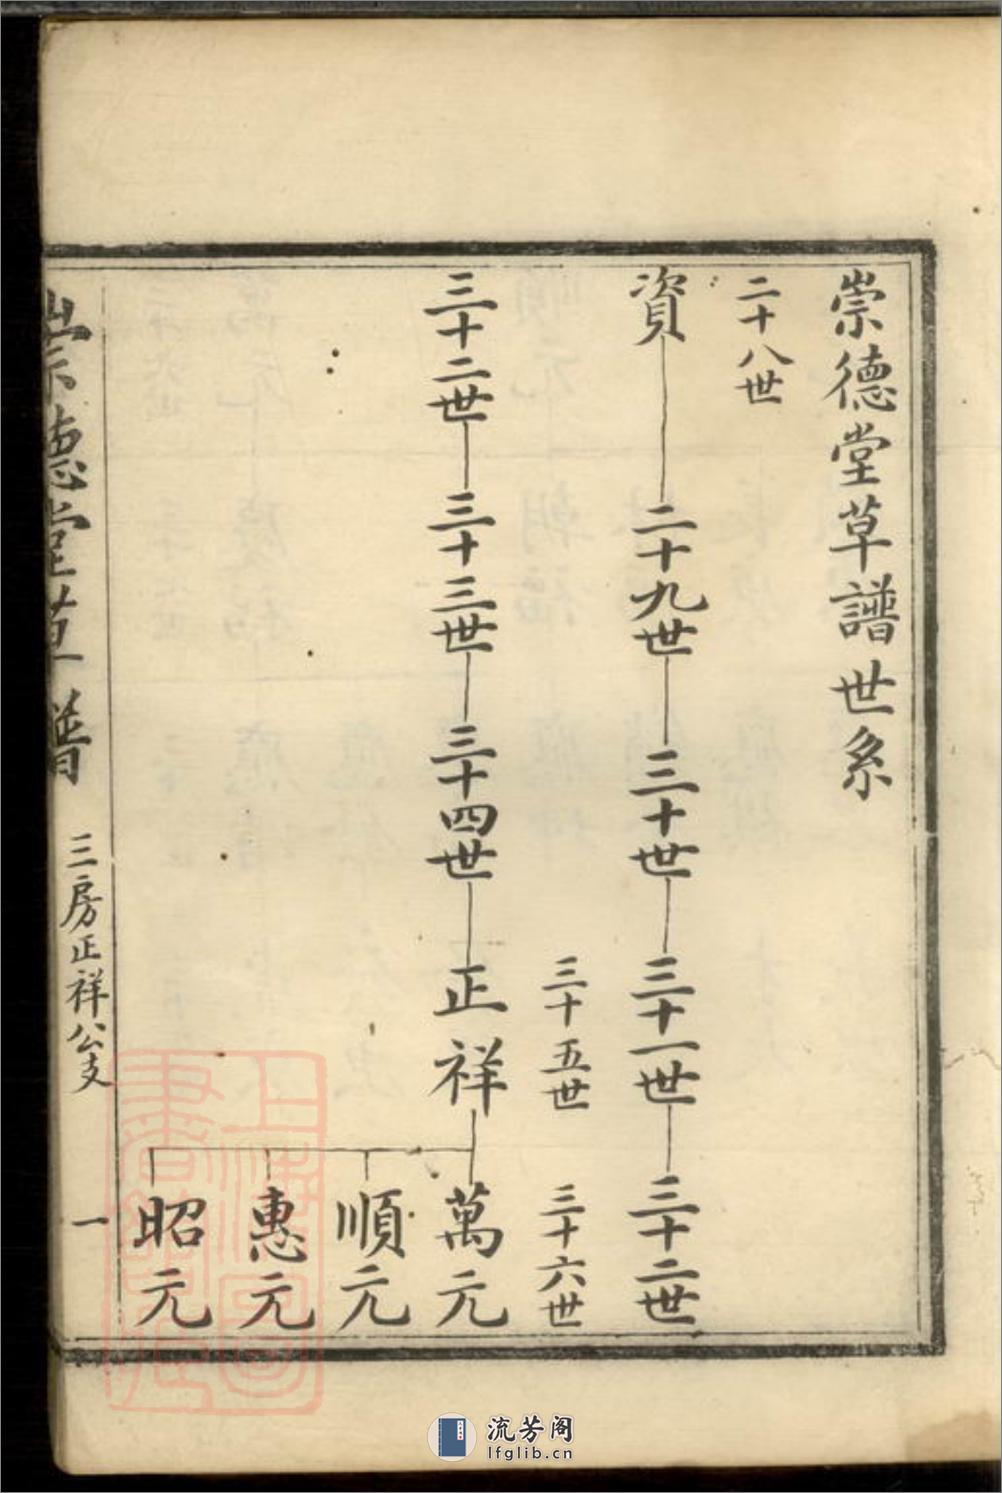 崇德堂草譜世系
二十八世
資 二十九世 三十世 三十一世 三十二世
三十五世 三十六世
三十二世 三十三世 三十四世 正祥 萬元
順元
惠元
昭元
崇德堂草譜 三房正祥公支 一
上海圖書館藏
流芳阁
lfglib.cn